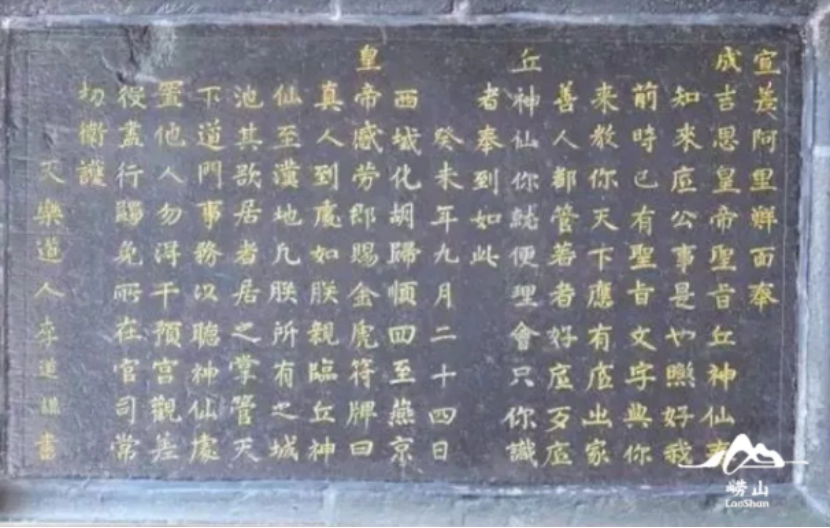 宣差阿里鮮面奉
成吉思皇帝聖旨丘神仙奏
知来底公事是也煞好我
前時已有聖旨文字與你
来教你天下應有底出家
善人都管着者好底歹底
丘神仙你就便理會只你識
者奉到如此
癸未年九月二十四日
西域化胡歸順回至燕京
皇帝感勞即賜金虎符牌曰
真人到處如朕親臨丘神
仙至漢地凡朕所有之城
池其欲居者居之掌管天
下道門事務以聽神仙處
置他人勿得干預宮觀差
役盡行蠲免所在官司常
切衛護
天樂道人李道謙書
崂山
LaoShan